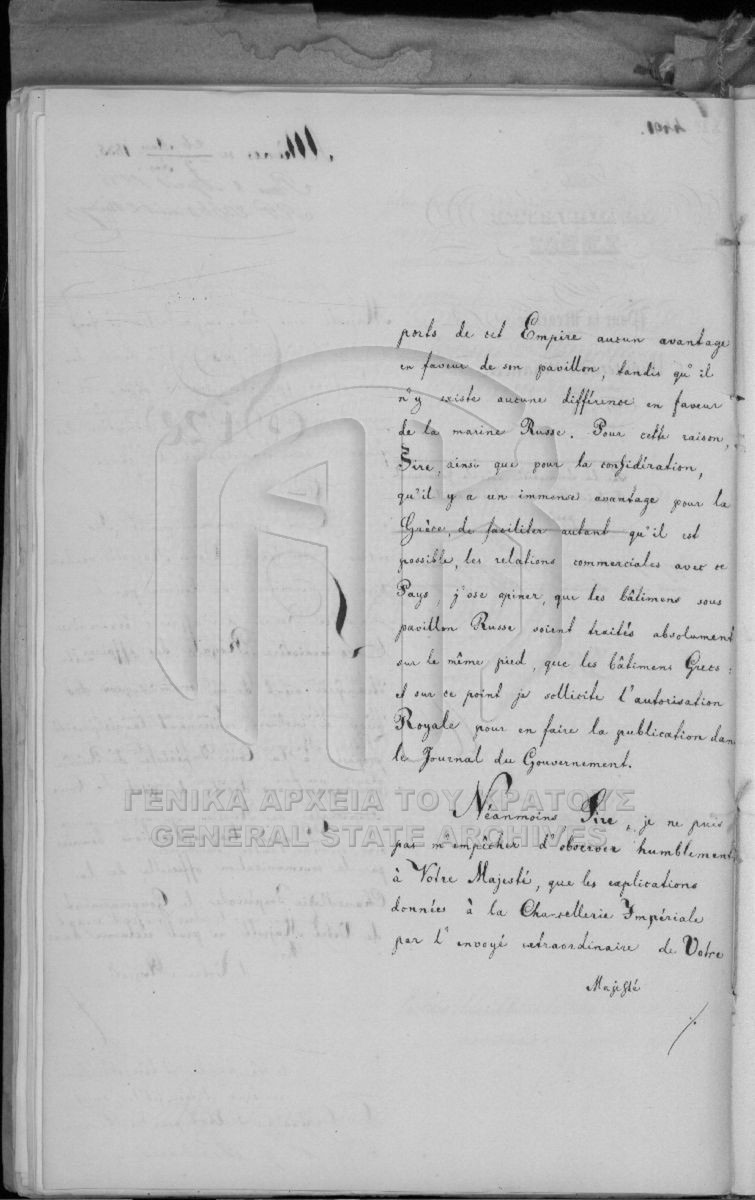 ports de cet Empire aucun avantage
en faveur de son pavillon, tandis qu'il
n'y existe aucune différence en faveur
de la marine Russe. Pour cette raison,
Sire, ainsi que pour la considération,
qu'il y a un immense avantage pour la
Grèce, de faciliter autant qu'il est
possible, les relations commerciales avec ce
Pays, j'ose opiner, que les bâtimens sous
pavillon Russe soient traités absolument
sur le même pied, que les bâtimens Grecs:
et sur ce point je sollicite l'autorisation
Royale pour en faire la publication dans
le Journal du Gouvernement.
Néanmoins Sire, je ne puis
pas m'empêcher d'observer humblement
à Votre Majesté, que les explications
données à la Chancellerie Impériale
par l'envoyé extraordinaire de Votre
Majesté
ΓΕΝΙΚΑ ΑΡΧΕΙΑ ΤΟΥ ΚΡΑΤΟΥΣ
GENERAL STATE ARCHIVES